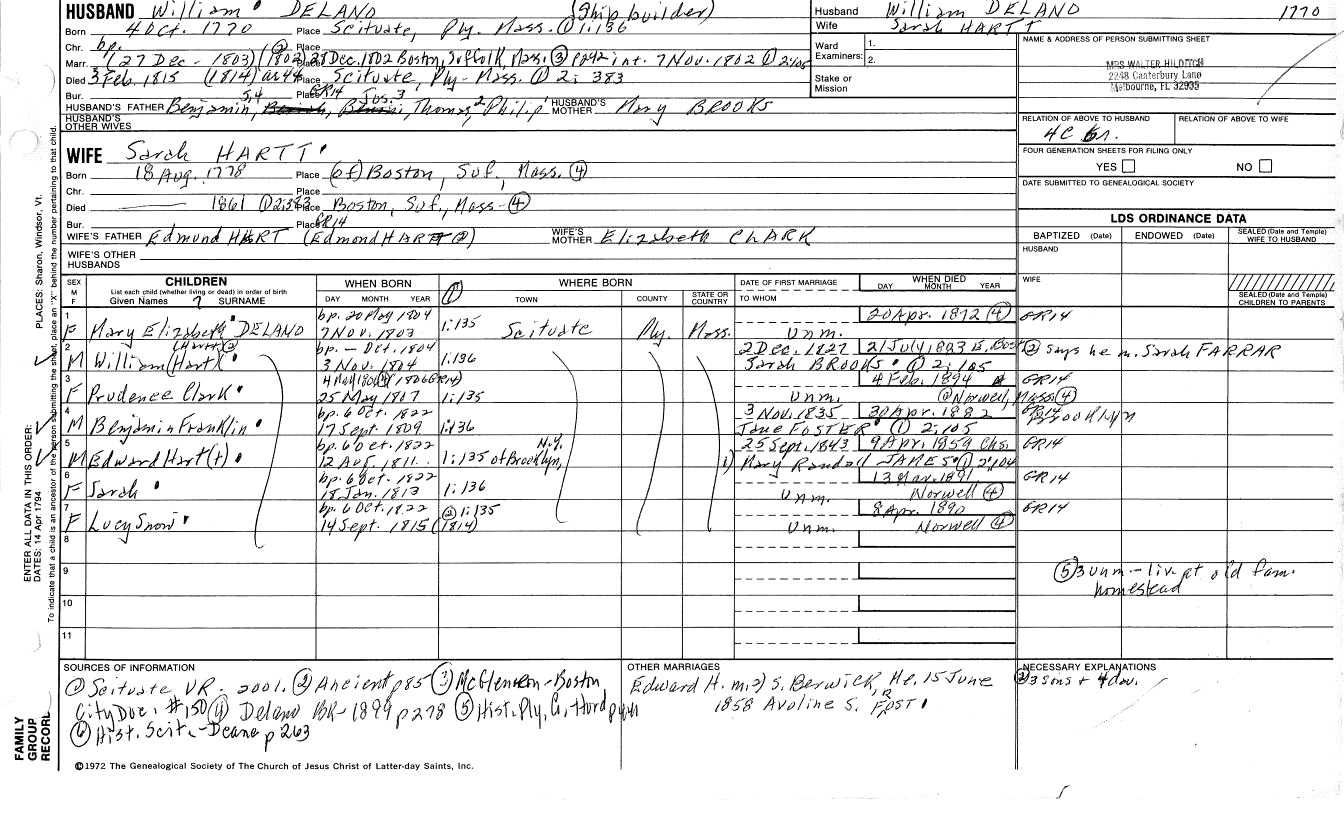 HUSBAND William DELANO (Ship builder)
Born 4 Oct. 1770 Place Scituate, Ply. Mass. ① 1:136
Chr. bp. Place
Marr. (27 Dec - 1803) (1802) 28 Dec. 1802 Boston, Suffolk, Mass. ③ p242 int. 7 Nov. 1802 ① 2:105
Died 3 Feb. 1815 (1814) ae 44 Place Scituate, Ply - Mass. ① 2: 383
Bur. Place GR14
HUSBAND'S FATHER Benjamin, Thomas, Philip HUSBAND'S MOTHER Mary BROOKS
HUSBAND'S OTHER WIVES
WIFE Sarah HARTT
Born 18 Aug. 1778 Place (of) Boston, Suf, Mass. ④
Chr. Place
Died 1861 ① 2:383 Place Boston, Suf., Mass - ④
Bur. Place GR14
WIFE'S FATHER Edmund HART (Edmond HARTT ②) WIFE'S MOTHER Elizabeth CLARK
WIFE'S OTHER HUSBANDS
Husband William DELANO 1770
Wife Sarah HARTT
Ward Examiners: 1. 2.
Stake or Mission
NAME & ADDRESS OF PERSON SUBMITTING SHEET
MRS WALTER HILDITCH
2248 Canterbury Lane
Melbourne, FL 32935
RELATION OF ABOVE TO HUSBAND RELATION OF ABOVE TO WIFE
4C
FOUR GENERATION SHEETS FOR FILING ONLY
YES NO
DATE SUBMITTED TO GENEALOGICAL SOCIETY
LDS ORDINANCE DATA
BAPTIZED (Date) ENDOWED (Date) SEALED (Date and Temple) WIFE TO HUSBAND
HUSBAND
WIFE
SEALED (Date and Temple) CHILDREN TO PARENTS
SEX M F
CHILDREN
List each child (whether living or dead) in order of birth
Given Names 7 SURNAME
WHEN BORN
DAY MONTH YEAR
①
WHERE BORN
TOWN COUNTY STATE OR COUNTRY
DATE OF FIRST MARRIAGE
TO WHOM
WHEN DIED
DAY MONTH YEAR
1 bp. 20 May 1804 20 Apr. 1872 ④ GR14
F Mary Elizabeth DELANO 7 Nov. 1803 1:135 Scituate Ply. Mass. Unm.
2 (Hartt ②) bp. - Oct. 1804 2 Dec. 1827 21 July, 1883 E. Bost ② says he m. Sarah FARRAR
M William (Hart) 3 Nov. 1804 1:136 Sarah BROOKS ① 2:105
3 4 May 1806 ④ (1806 GR14) 4 Feb. 1894 GR14
F Prudence Clark 25 May 1807 1:135 Unm. @ Norwell, Mass. ④
4 bp. 6 Oct. 1822 3 Nov. 1835 30 Apr. 1882 GR14 Brooklyn
M Benjamin Franklin 17 Sept. 1809 1:136 Jane FOSTER (1) 2:105
5 bp. 6 Oct. 1822 N.Y. 25 Sept. 1843 9 Apr. 1859 Chs. GR14
M Edward Hart(t) 12 Aug. 1811 1:135 of Brooklyn, 1) Mary Randall JAMES ① 2:104
6 bp. 6 Oct. 1822 13 Mar. 1891 GR14
F Sarah 18 Jan. 1813 1:136 Unm. Norwell ④
7 bp. 6 Oct. 1822 ② 1:135 8 Apr. 1890 GR14
F Lucy Snow 14 Sept. 1815 (1814) Unm. Norwell ④
8
9 ⑤ 3 unm - live at old fam. homestead
10
11
SOURCES OF INFORMATION
① Scituate VR - 2001. ② Ancient p85 ③ McGlenen - Boston
City Doc. #150 ④ Delano BR - 1899 p278 ⑤ Hist. Ply. Co. Hurd
⑥ Hist. Scit. - Deane p263
OTHER MARRIAGES
Edward H. m 2) S. Berwick, Me. 15 June
1858 Avoline S. FOST
NECESSARY EXPLANATIONS
3 sons + 4 dau.
©1972 The Genealogical Society of The Church of Jesus Christ of Latter-day Saints, Inc.
FAMILY GROUP RECORD
ENTER ALL DATA IN THIS ORDER:
DATES: 14 Apr 1794
PLACES: Sharon, Windsor, Vt.
To indicate that a child is an ancestor of the person submitting the sheet, place an "X" behind the number pertaining to that child.